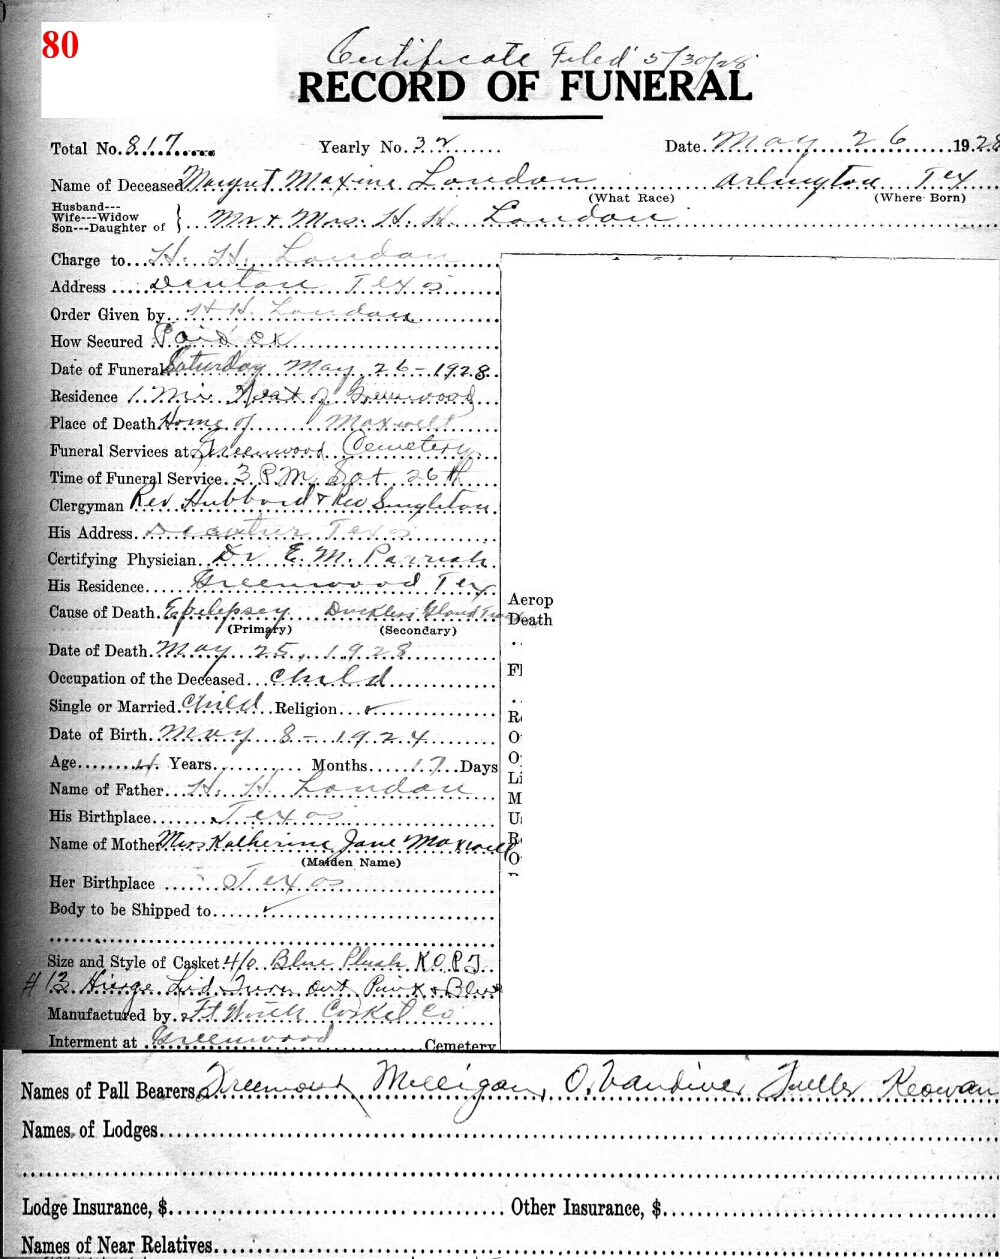 80
Certificate Filed 5/30/28
RECORD OF FUNERAL
Total No. 817 Yearly No. 32 Date May 26 1928
Name of Deceased Margret Maxine London Arlington Tex
(What Race) (Where Born)
Husband---
Wife---Widow
Son---Daughter of } Mr & Mrs. H. H. London
Charge to H. H. London
Address Denton Texas
Order Given by H H London
How Secured Paid OK
Date of Funeral Saturday May 26-1928
Residence 1 Mi West of Greenwood
Place of Death Home of Maxwell
Funeral Services at Greenwood Cemetery
Time of Funeral Service 3 P.M. Sat 26th
Clergyman Rev Hubbard & Rev Singleton
His Address Decatur Texas
Certifying Physician Dr E. M. Parrish
His Residence Greenwood Tex
Cause of Death Epelepsey Duckless Gland
(Primary) (Secondary)
Aerop
Death
Date of Death May 25, 1928
Occupation of the Deceased Child
Single or Married Child Religion ✓
Date of Birth May 8-1924
Age 4 Years Months 17 Days
Name of Father H. H. London
His Birthplace Texas
Name of Mother Miss Katherine Jane Maxwell
(Maiden Name)
Her Birthplace Texas
Body to be Shipped to ✓
Size and Style of Casket 4/0 Blue Plush K.O.P.J
#13 Hinge Lid Turn out Pink & Blue
Manufactured by Ft Worth Casket Co
Interment at Greenwood Cemetery
Names of Pall Bearers Milligan, O. Vandiver Fuller Keowan
Names of Lodges
Lodge Insurance, $ Other Insurance, $
Names of Near Relatives